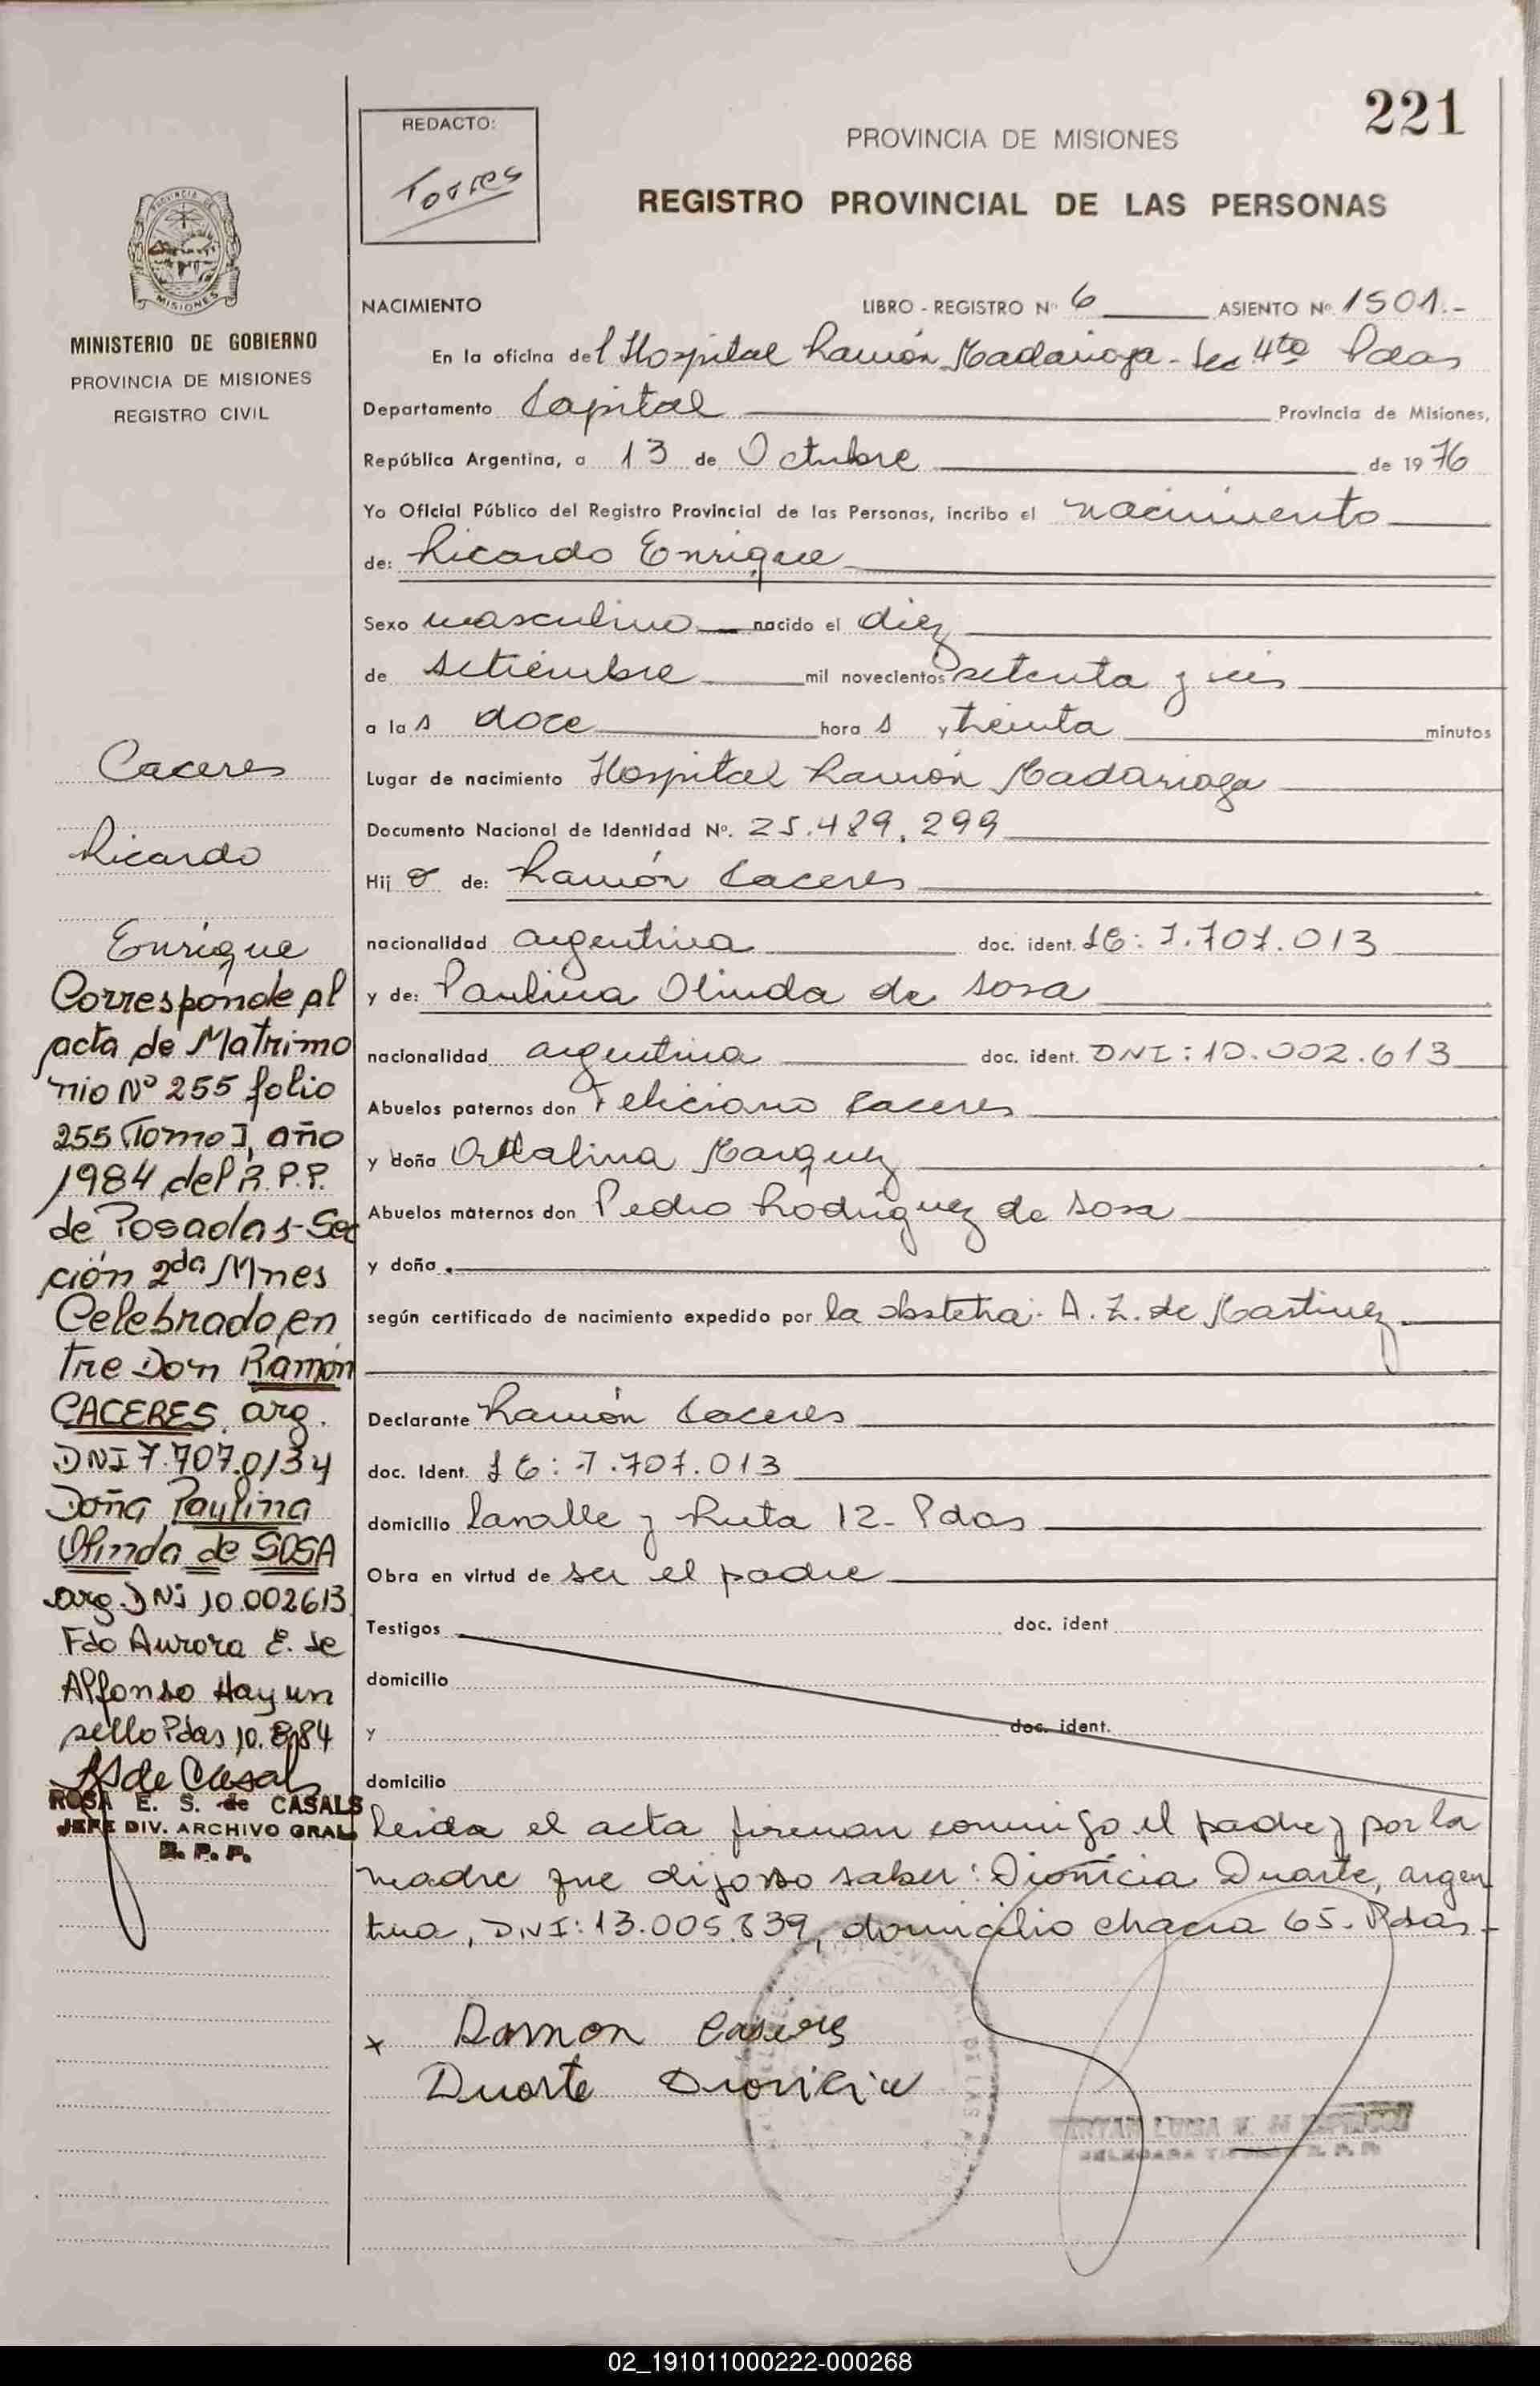 221
REDACTO:
Torres
PROVINCIA DE MISIONES
REGISTRO PROVINCIAL DE LAS PERSONAS
PROVINCIA DE
MISIONES
MINISTERIO DE GOBIERNO
PROVINCIA DE MISIONES
REGISTRO CIVIL
NACIMIENTO LIBRO - REGISTRO Nº 6 ASIENTO Nº 1501.-
En la oficina del Hospital Ramón Madariaga - Sec 4ta Pdas
Departamento Capital Provincia de Misiones,
República Argentina, a 13 de Octubre de 1976
Yo Oficial Público del Registro Provincial de las Personas, incribo el nacimiento
de: Ricardo Enrique
Sexo masculino nacido el diez
de setiembre mil novecientos setenta y seis
a las doce horas y treinta minutos
Lugar de nacimiento Hospital Ramón Madariaga
Documento Nacional de Identidad Nº. 25.489.299
Hijo de: Ramón Caceres
nacionalidad argentina doc. ident. LE: 7.707.013
y de: Paulina Olinda de Sosa
nacionalidad argentina doc. ident. DNI: 10.002.613
Abuelos paternos don Feliciano Caceres
y doña Marquez
Abuelos maternos don Pedro Rodriguez de Sosa
y doña.
según certificado de nacimiento expedido por la obstetra: A. Z. de Martinez
Declarante Ramón Caceres
doc. Ident. LE: 7.707.013
domicilio Lavalle y Ruta 12 - Pdas
Obra en virtud de ser el padre
Testigos doc. ident
domicilio
y doc. ident.
domicilio
Leida el acta firman conmigo el padre y por la
madre que dijo no saber: Dionicia Duarte, argen
tina, DNI: 13.005.839, domicilio chacra 65. Pdas.-
x Ramon Caseres
Duarte Dionicia
Caceres
Ricardo
Enrique
Corresponde al
acta de Matrimo
nio Nº 255 folio
255 Tomo I, año
1984 del R.P.P.
de Posadas-Sec
ción 2da Mnes
Celebrado en
tre Don Ramón
CACERES arg.
DNI 7.707.013 y
Doña Paulina
Olinda de SOSA
arg DNi 10.002613
Fdo Aurora E. de
Alfonso Hay un
sello Pdas 10.8.84
RS de Casals
ROSA E. S. de CASALS
JEFE DIV. ARCHIVO GRAL
R. P. P.
02_191011000222-000268